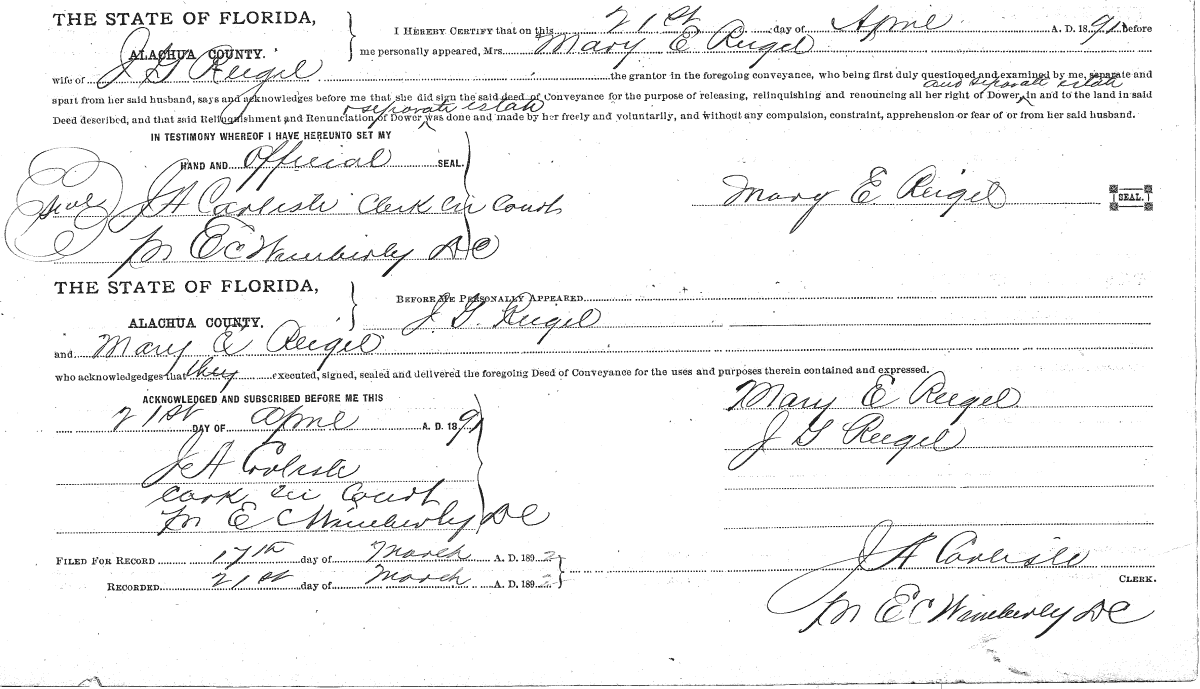 THE STATE OF FLORIDA,
ALACHUA COUNTY.
I HEREBY CERTIFY that on this 21st day of April A. D. 1891 before
me personally appeared, Mrs. Mary E Reigel
wife of J G Reigel the grantor in the foregoing conveyance, who being first duly questioned and examined by me, separate and
and separate estate
apart from her said husband, says and acknowledges before me that she did sign the said deed of Conveyance for the purpose of releasing, relinquishing and renouncing all her right of Dower, in and to the land in said
separate estate
Deed described, and that said Relinquishment and Renunciation of Dower was done and made by her freely and voluntarily, and without any compulsion, constraint, apprehension or fear of or from her said husband.
IN TESTIMONY WHEREOF I HAVE HEREUNTO SET MY
HAND AND Official SEAL.
Seal J A Carlisle Clerk Cir Court
Mary E Reigel SEAL.
E C Wimberly DC
THE STATE OF FLORIDA,
ALACHUA COUNTY.
BEFORE ME PERSONALLY APPEARED
J. G. Reigel
and Mary E Reigel
who acknowledgedges that they executed, signed, sealed and delivered the foregoing Deed of Conveyance for the uses and purposes therein contained and expressed.
ACKNOWLEDGED AND SUBSCRIBED BEFORE ME THIS
21st DAY OF April A. D. 1891
Mary E Reigel
J G Reigel
J A Carlisle
Clerk Cir Court
E C Wimberly DC
FILED FOR RECORD 17th day of March A. D. 1892
RECORDED 21st day of March A. D. 1892
J A Carlisle
CLERK.
E C Wimberly DC